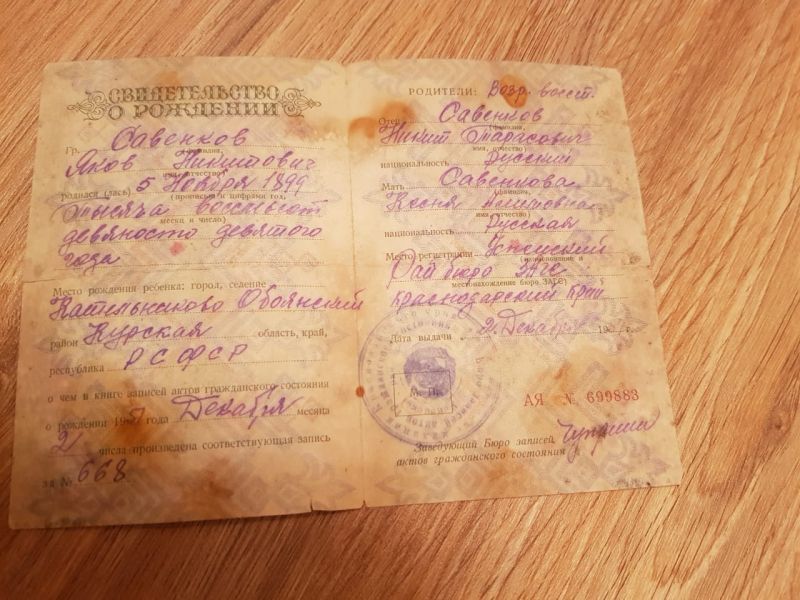 СВИДЕТЕЛЬСТВО
О РОЖДЕНИИ
Гр. Савенков
(фамилия,
Яков Никитович
имя, отчество)
родился (лась) 5 Ноября 1899
(прописью и цифрами год,
тысяча восемьсот
месяц и число)
девяносто девятого
года
Место рождения ребенка: город, селение
Котельниково Обоянский
район Курская область, край,
республика РСФСР
о чем в книге записей актов гражданского состояния
о рождении 19 года Декабря месяца
2 числа произведена соответствующая запись
за № 668
РОДИТЕЛИ: Возр. восст.
Отец Савенков
(фамилия,
Никит Тарасович
имя, отчество)
национальность Русский
Мать Савенкова
(фамилия,
Ксеня
имя, отчество)
национальность Русская
Место регистрации Успенский
(наименование и
Рай бюро ЗАГС
местонахождение бюро ЗАГС)
Краснодарский край
Дата выдачи 2 Декабря 19 г.
М. П.
АЯ № 699883
Заведующий Бюро записей
актов гражданского состояния